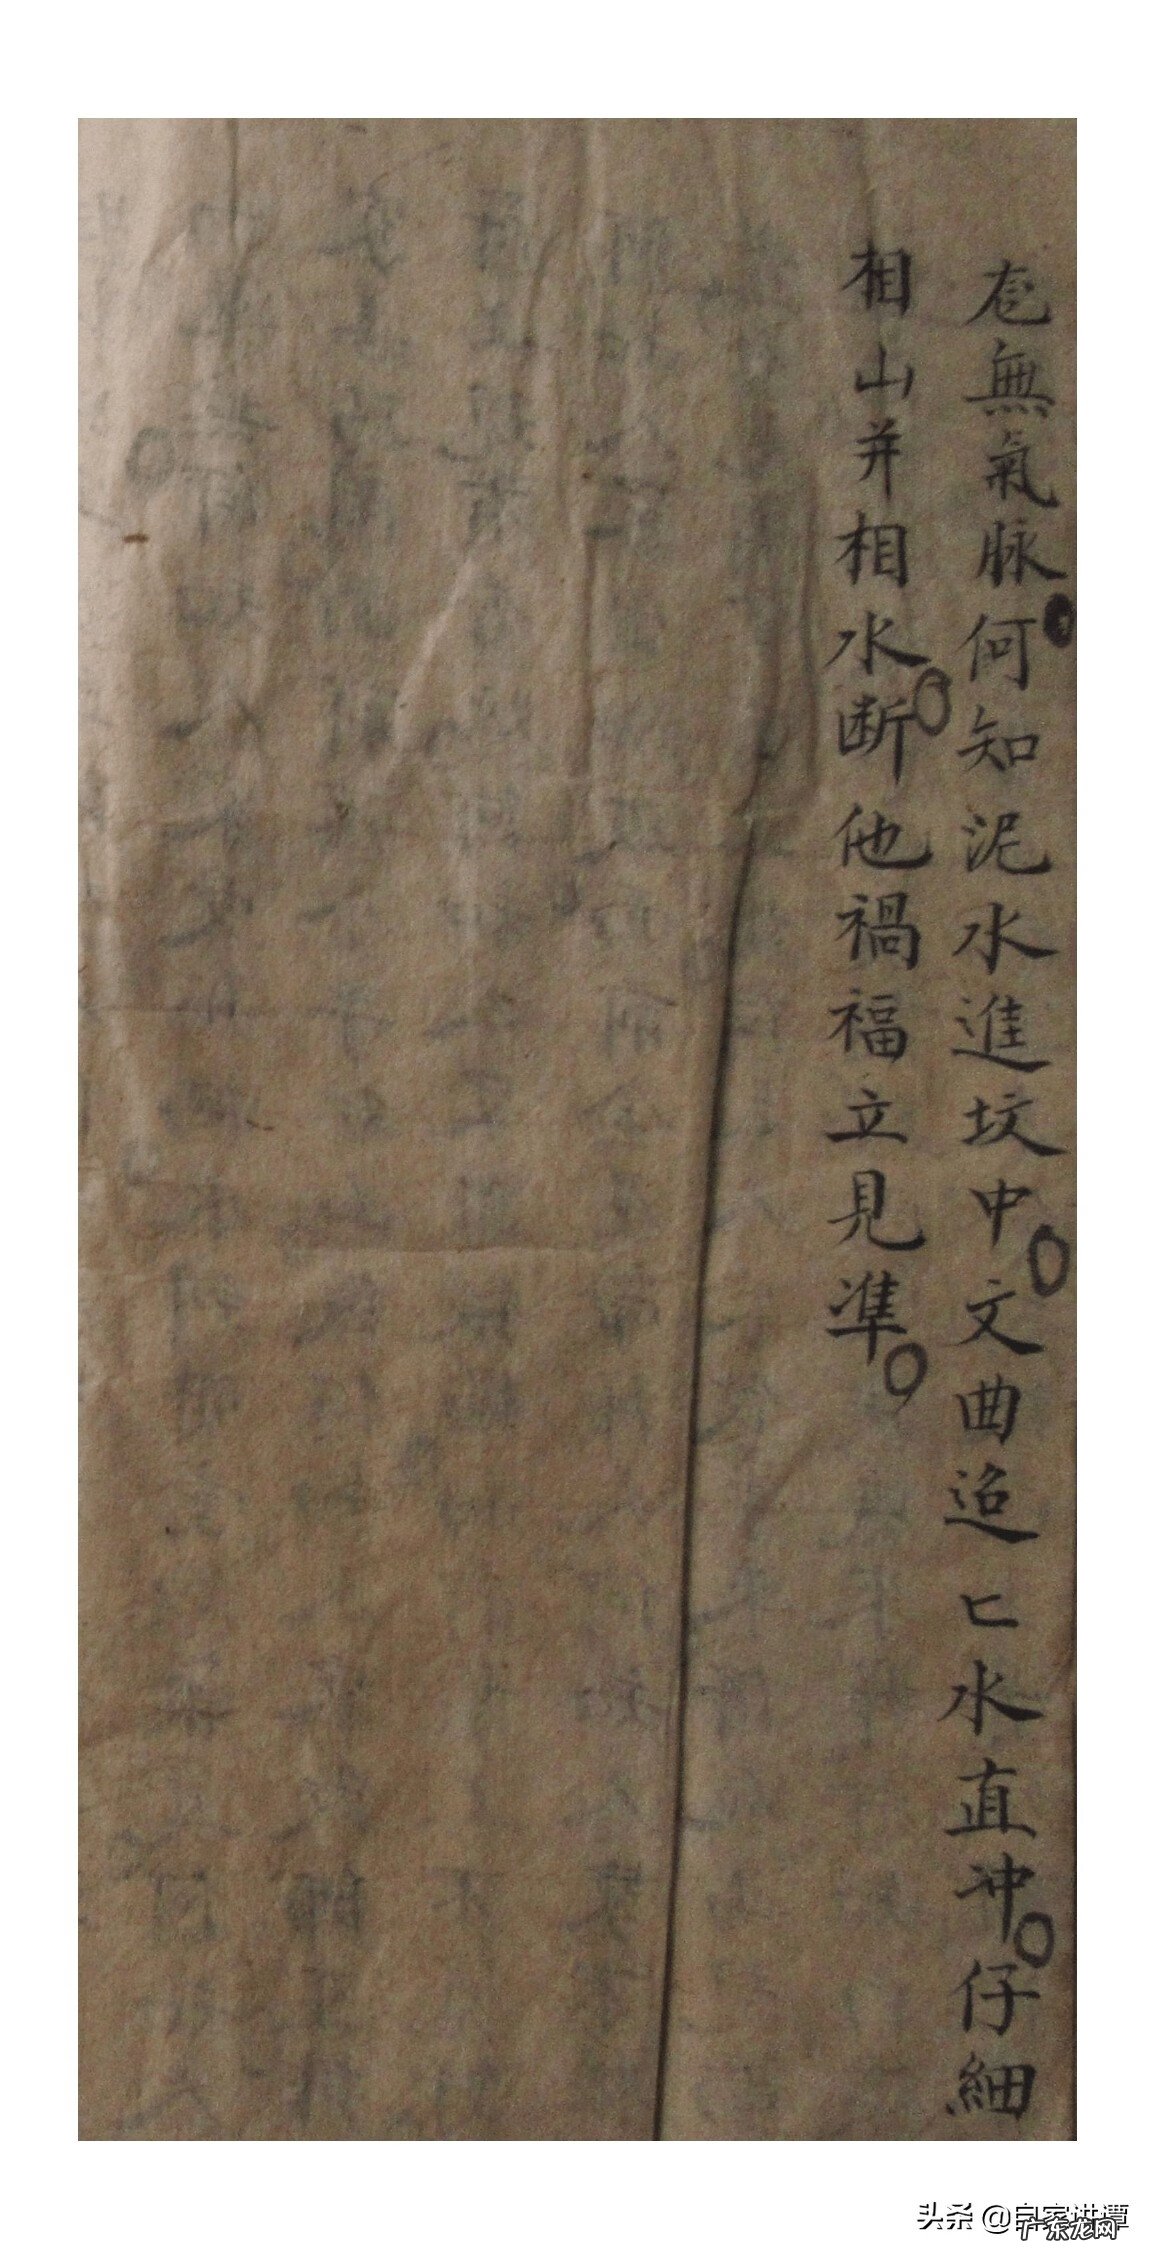 無氣脉何知泥水進坟中文曲迢匕水直冲仔細
相山并相水断他禍福立見準
头条
广东龙网